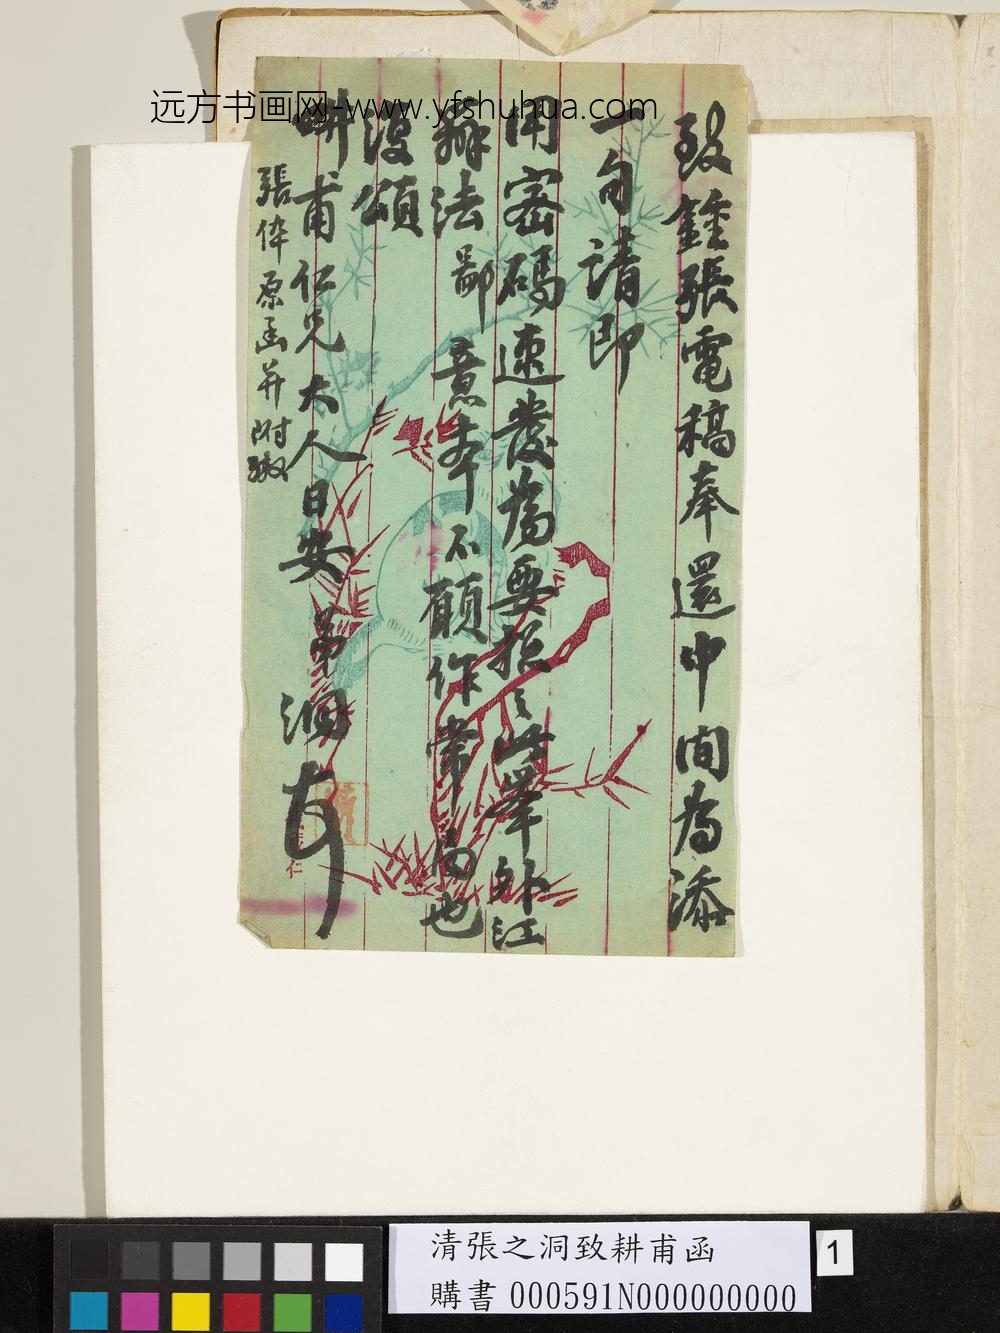 远方书画网-www.yfshuhua.com
致鍾張電稿奉還中間為添
一句請即
用密碼速發為要揔之此舉外江
辦法鄙意本不願作常局也
復頌
耕甫仁兄大人日安 弟洞
張倅原函并附繳
清張之洞致耕甫函
購書 000591N000000000
1